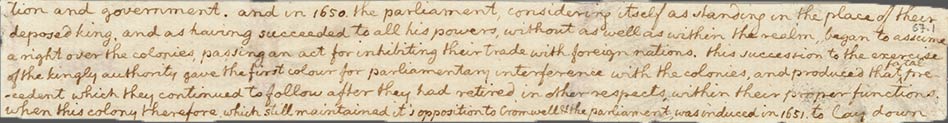 tion and government. and in 1650. the parliament, considering itself as standing in the place of their
deposed king, and as having succeeded to all his powers, without as well as within the realm, began to assume
67.1
a right over the colonies, passing an act for inhibiting their trade with foreign nations. this succession to the exercise
of the kingly authority gave the first colour for parliamentary interference with the colonies, and produced that fatal pre-
-cedent which they continued to follow after they had retired in other respects, within their proper functions.
when this colony therefore, which still maintained it's opposition to Cromwell & the parliament, was induced in 1651. to lay down